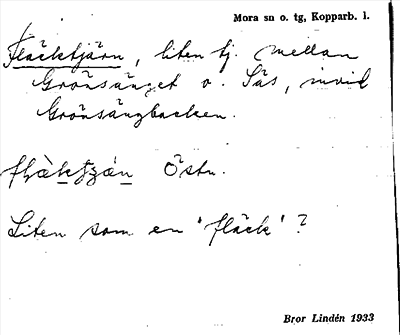 Mora sn o. tg, Kopparb. l.
Fläcktjärn, liten tj. mellan
Grönsänget o. Säs, invid
Grönsängbacken.
Östn.
Liten som en 'fläck'?
Bror Lindén 1933